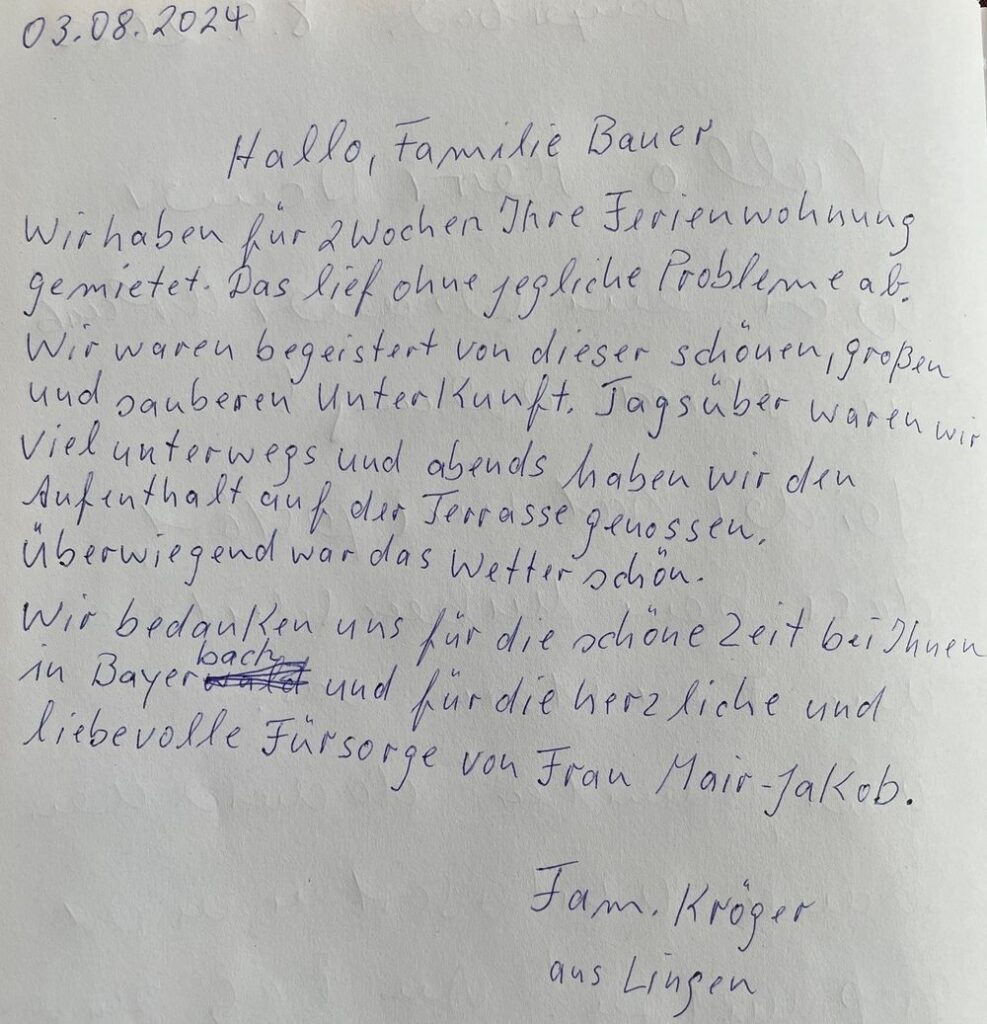 03.08.2024
Hallo, Familie Bauer
Wir haben für 2 Wochen Ihre Ferienwohnung
gemietet. Das lief ohne jegliche Probleme ab.
Wir waren begeistert von dieser schönen, großen
und sauberen Unterkunft. Tagsüber waren wir
viel unterwegs und abends haben wir den
Aufenthalt auf der Terrasse genossen.
Überwiegend war das Wetter schön.
Wir bedanken uns für die schöne Zeit bei Ihnen
in Bayerbach und für die herzliche und
liebevolle Fürsorge von Frau Mair-Jakob.
Fam. Kröger
aus Lingen